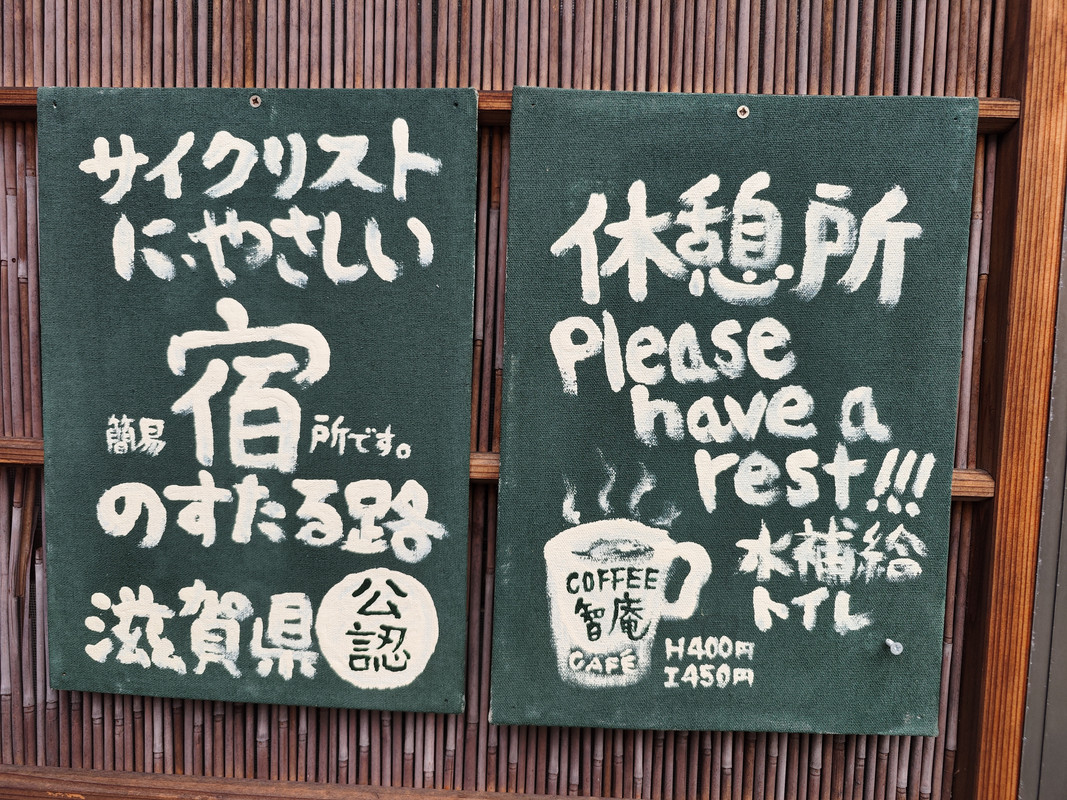 サイクリスト
にやさしい
宿
簡易 所です。
のすたる路
滋賀県
公認
休憩所
Please
have a
rest!!!
水補給
トイレ
COFFEE
智庵
CAFÉ
H400円
I450円